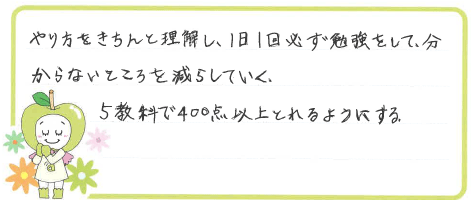 やり方をきちんと理解し、1日1回必ず勉強をして、分
からないところを減らしていく、
5教科で400点以上とれるようにする。